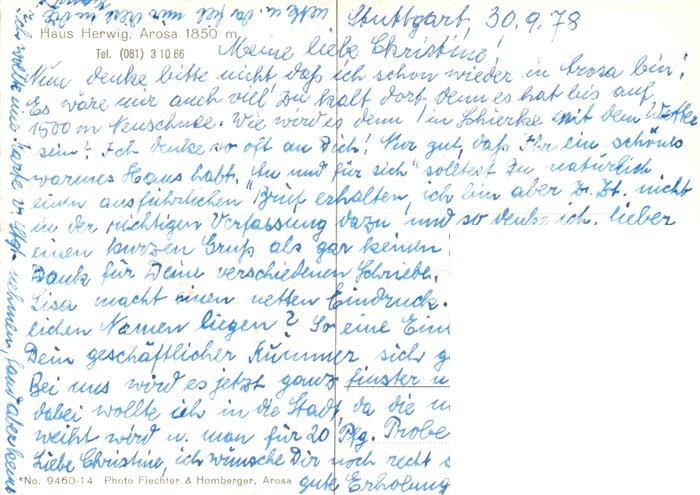 Stuttgart, 30.9.78
Haus Herwig, Arosa 1850 m
Tel. (081) 3 10 66
Meine liebe Christine!
Nun denke bitte nicht daß ich schon wieder in Arosa bin!
Es wäre mir auch viel zu kalt dort, denn es hat bis auf
1500 m Neuschnee. Wie wird es denn in Schierke mit dem Wetter
sein? Ich denke so oft an Dich! Nur gut, daß Ihr ein schönes
warmes Haus habt. "An und für sich" solltest Du natürlich
einen ausführlichen Brief erhalten, ich bin aber z. Zt. nicht
in der richtigen Verfassung dazu und so denke ich lieber
einen kurzen Gruß als gar keinen
Dank für Deine verschiedenen Schriebe.
Lisa macht einen netten Eindruck.
lichen Namen liegen? So eine Ein
Dein geschäftlicher Kummer sich g
Bei uns wird es jetzt ganz finster u
dabei wollte ich in die Stadt, da die
weiht wird u. man für 20 Pfg. Probe
Liebe Christine, ich wünsche Dir noch recht s
gute Erholung
No. 9460-14 Photo Flechter & Homberger, Arosa
Ich wollte eine Karte v. Stgt. nehmen, fand aber keine